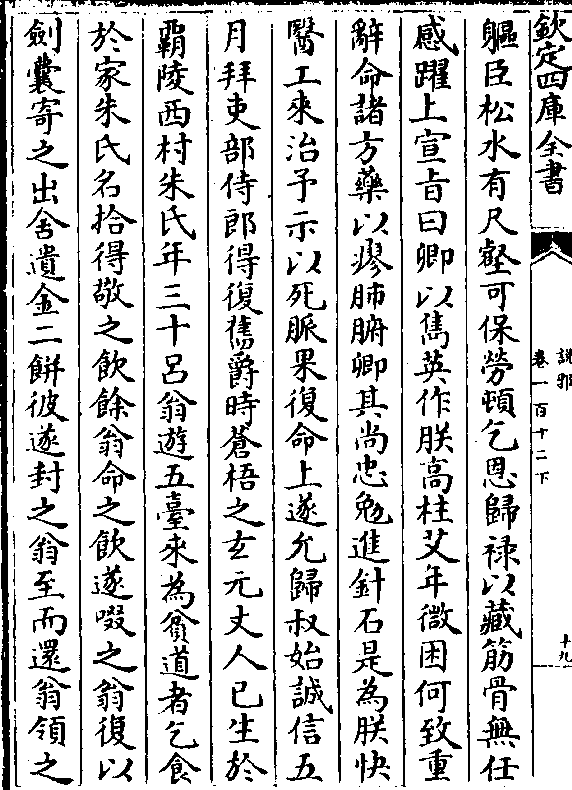 欽定四庫全書
說郛
卷一百十二下
十九
軀臣松水有尺壑可保勞頓乞恩歸祿以藏筋骨無任
感躍上宣旨曰卿以雋英作朕高柱艾年微困何致重
辭命諸方藥以瘳肺腑卿其尚忠勉進針石是為朕快
醫工來治予示以死脈果復命上遂允歸叔始誠信五
月拜吏部侍郎得復舊爵時蒼梧之玄元丈人已生於
覇陵西村朱氏年三十呂翁遊五臺來為貧道者乞食
於家朱氏名拾得敬之飲餘翁命之飲遂啜之翁復以
劍囊寄之出舍遺金二餅彼遂封之翁至而還翁領之